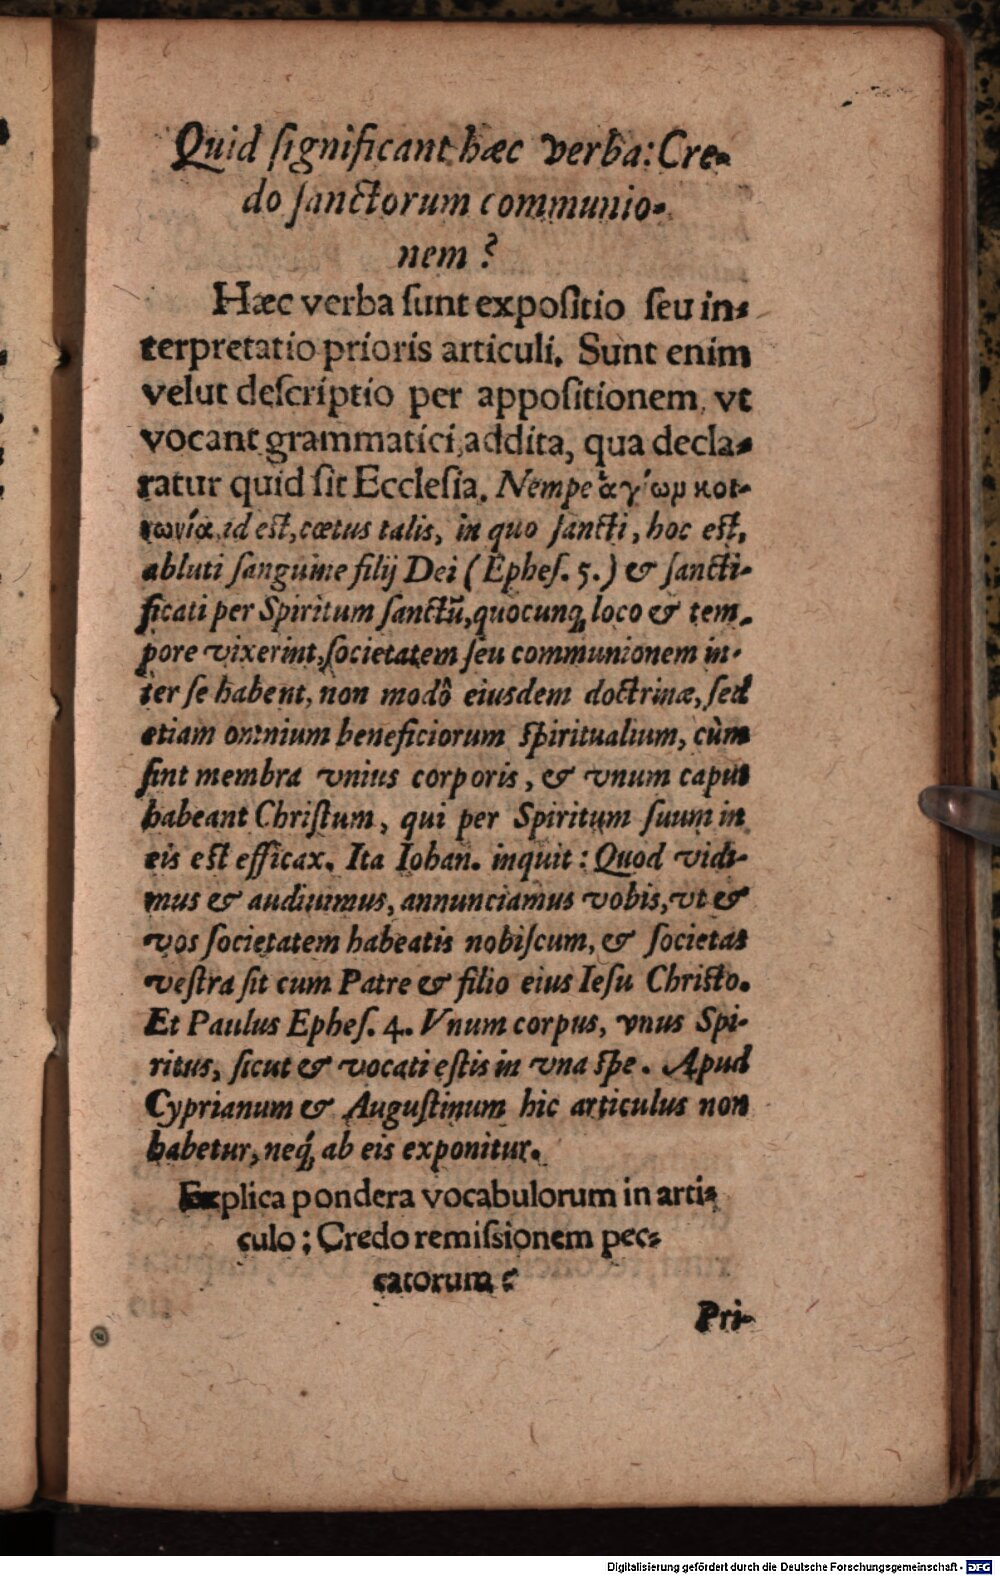 Quid ſignificant hæc verba: Cre-
do ſanctorum communio-
nem?
Hæc verba ſunt expoſitio ſeu in-
terpretatio prioris articuli. Sunt enim
velut deſcriptio per appoſitionem, vt
vocant grammatici, addita, qua decla-
ratur quid ſit Eccleſia. Nempe ἁγίωμ κοι-
νωνία, id eſt, cœtus talis, in quo ſancti, hoc eſt,
abluti ſanguine filij Dei (Epheſ. 5.) & ſancti-
ficati per Spiritum ſanctũ, quocunq; loco & tem-
pore vixerint, ſocietatem ſeu communionem in-
ter ſe habent, non modô eiusdem doctrinæ, ſed
etiam omnium beneficiorum ſpiritualium, cùm
ſint membra vnius corporis, & vnum caput
habeant Chriſtum, qui per Spiritum ſuum in
eis eſt efficax. Ita Iohan. inquit: Quod vidi-
mus & audiuimus, annunciamus vobis, vt &
vos ſocietatem habeatis nobiſcum, & ſocietas
veſtra ſit cum Patre & filio eius Ieſu Chriſto.
Et Paulus Epheſ. 4. Vnum corpus, vnus Spi-
ritus, ſicut & vocati eſtis in vna ſpe. Apud
Cyprianum & Auguſtinum hic articulus non
habetur, neq́; ab eis exponitur.
Explica pondera vocabulorum in arti-
culo; Credo remiſsionem pec-
catorum?
Pri-
Digitalisierung gefördert durch die Deutsche Forschungsgemeinschaft - DFG